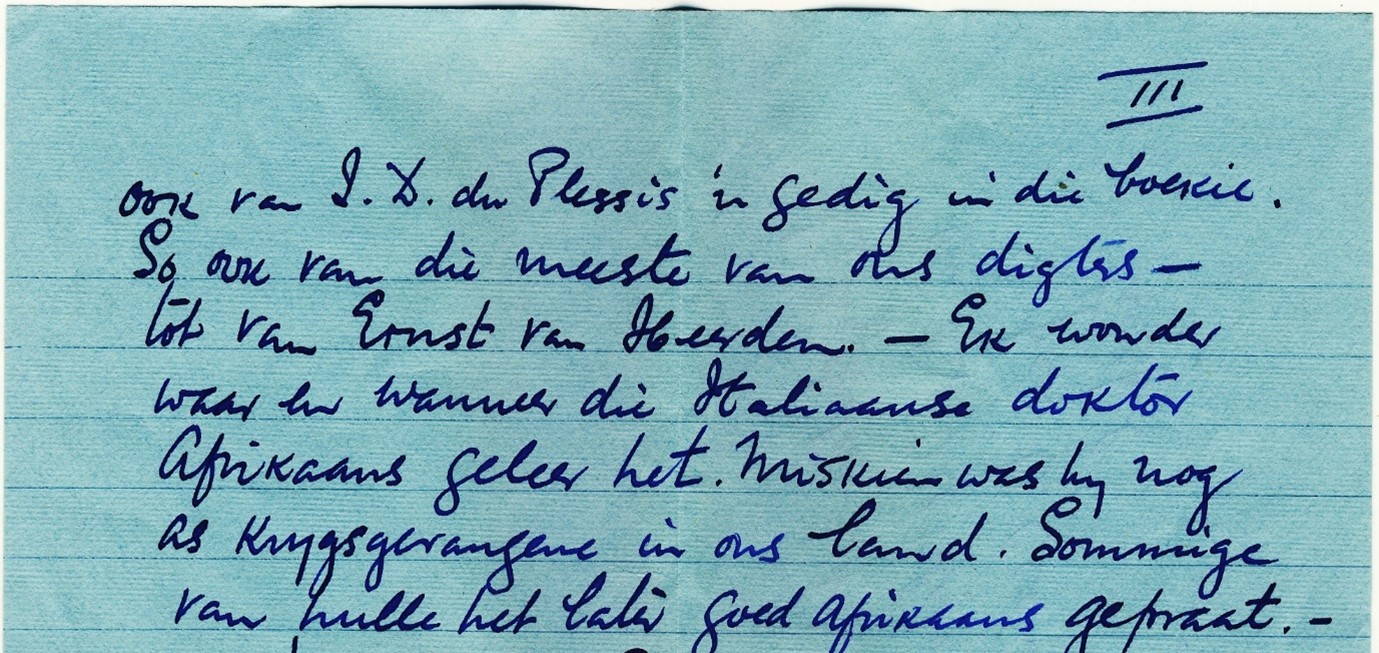 III
ook van I. D. du Plessis 'n gedig in die boekie.
So ook van die meeste van ons digters —
tot van Ernst van Heerden. — Ek wonder
waar en wanneer die Italiaanse dokter
Afrikaans geleer het. Miskien was hy nog
as krygsgevangene in ons land. Sommige
van hulle het later goed Afrikaans gepraat. —